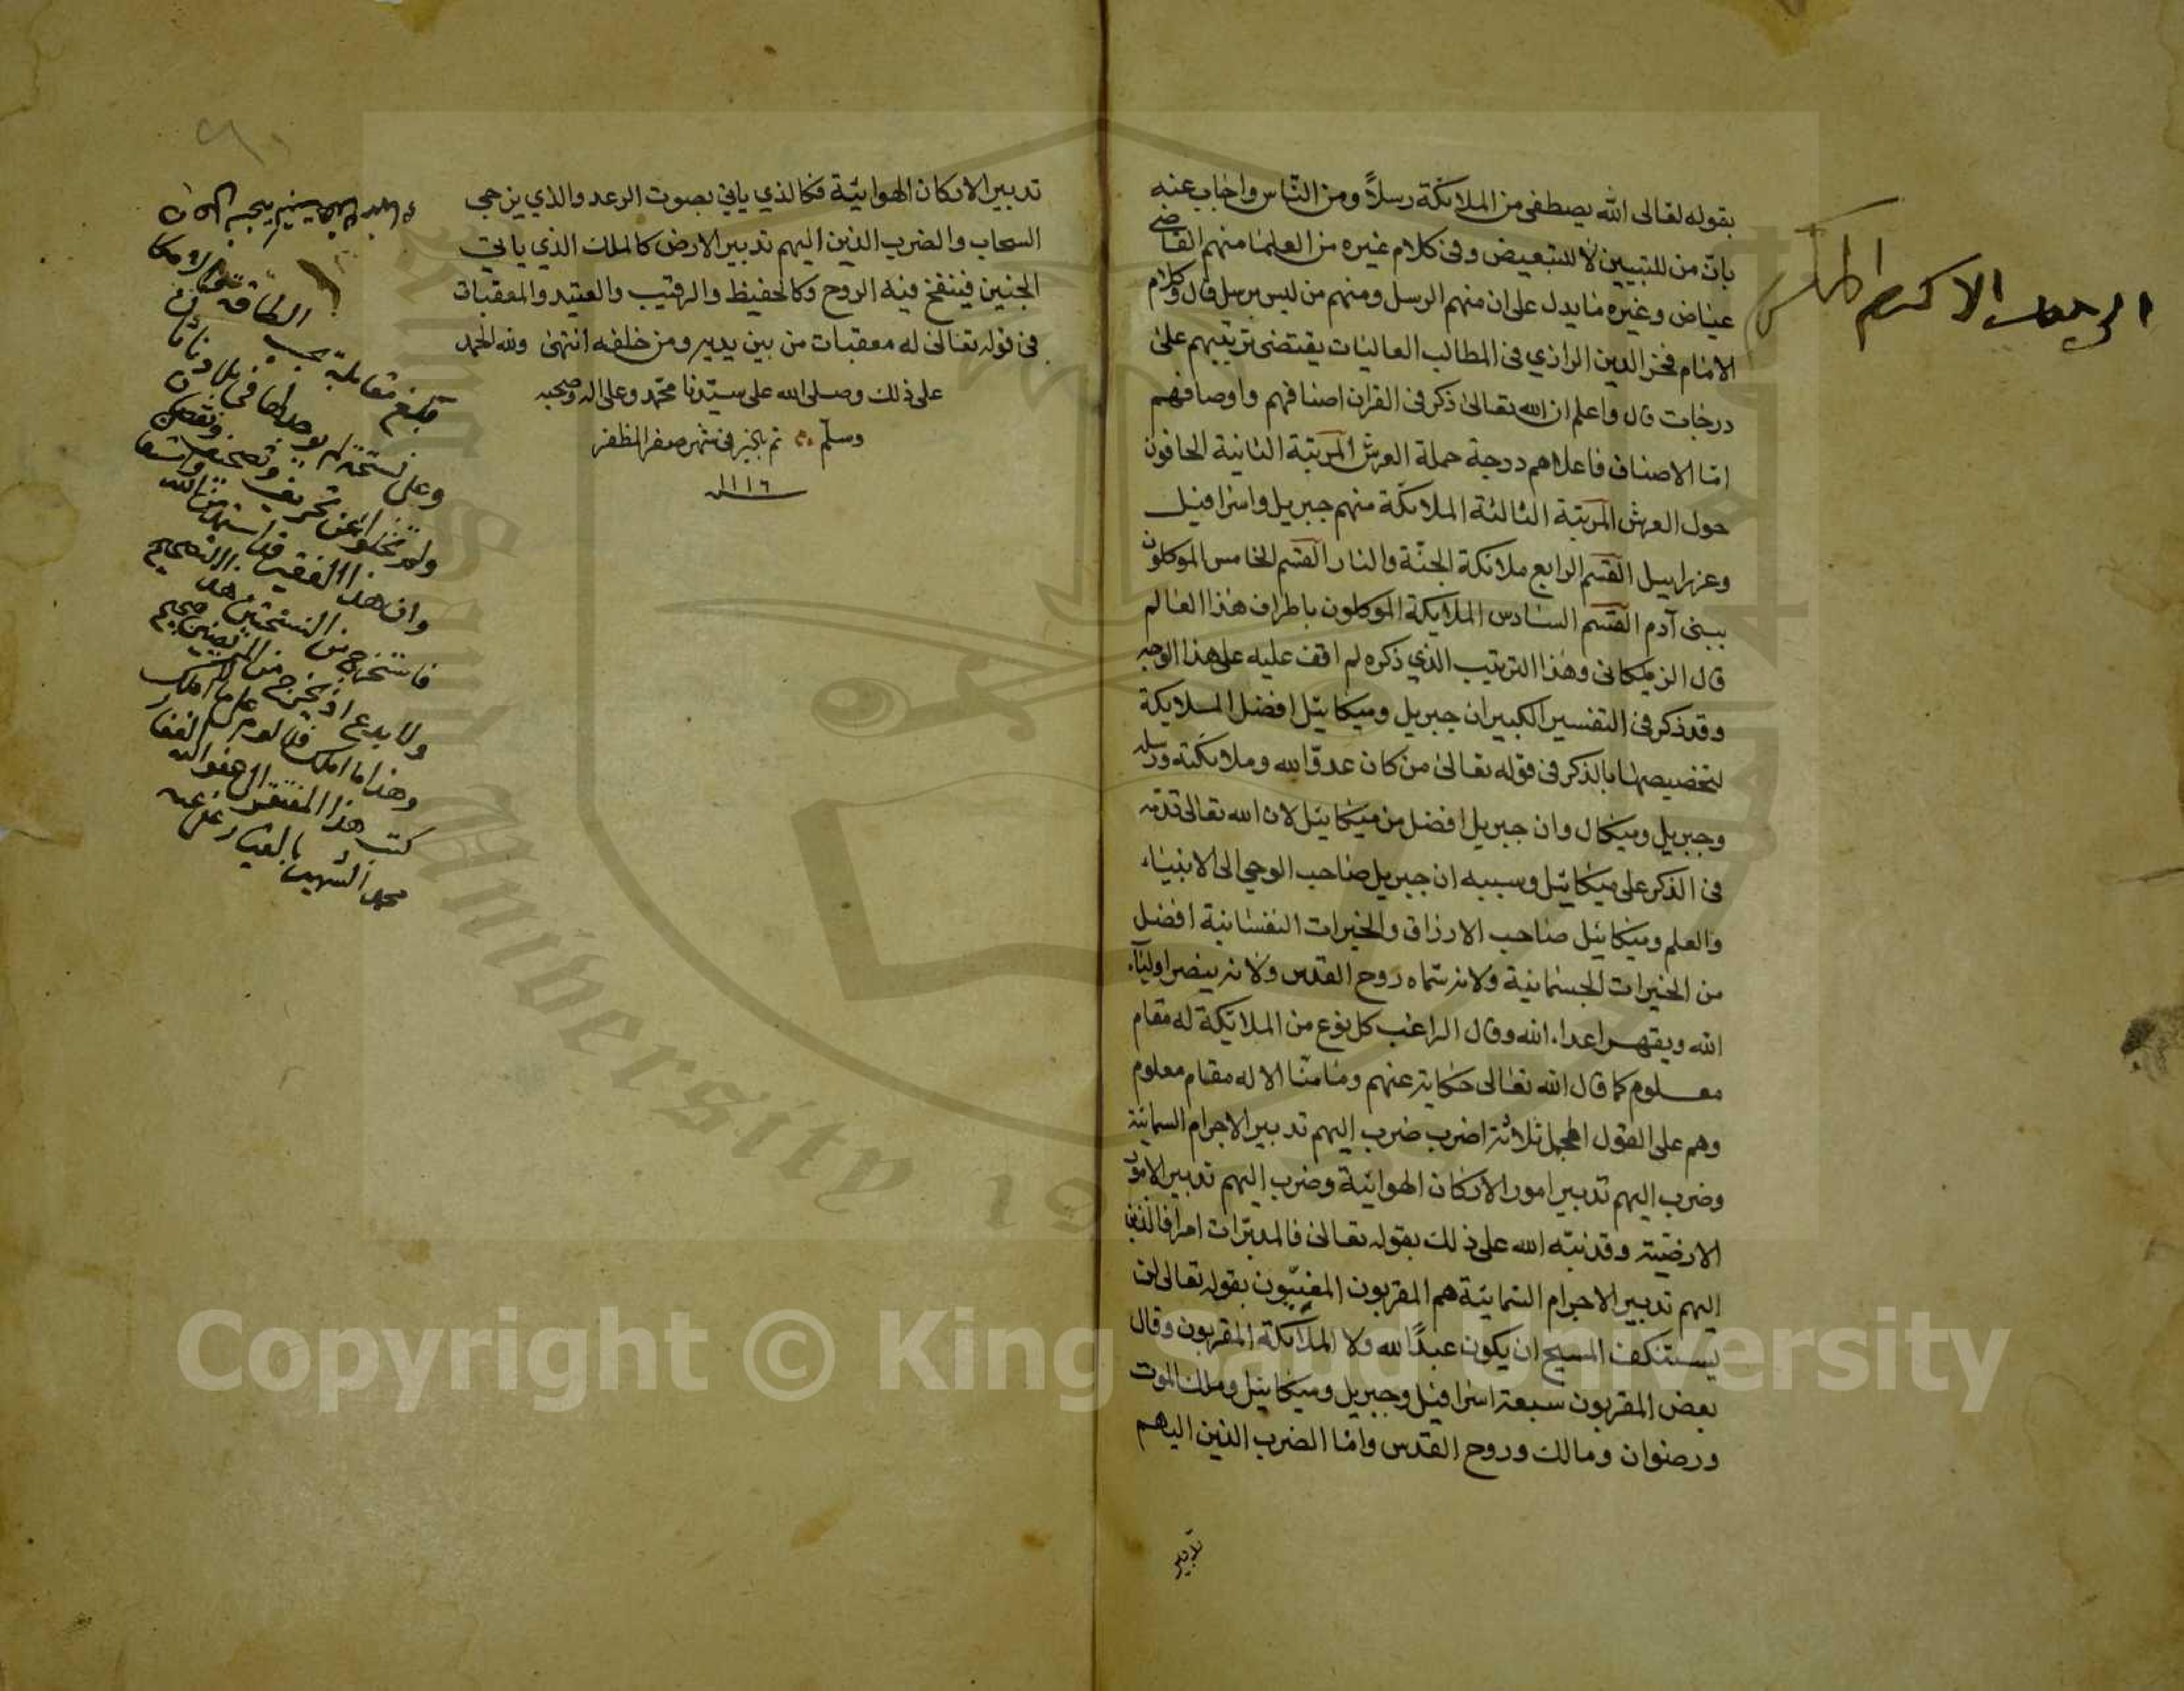 بقوله تعالى الله يصطفى من الملائكة رسلاً ومن الناس واجاب عنه
بانّ من للتبيين لا للتبعيض وفى كلام غيره من العلما منهم القاضي
عياض وغيره ما يدل على ان منهم الرسل ومنهم من ليس برسل قال وكلام
الامام فخر الدين الرازي فى المطالب العاليات يقتضى ترتيبهم على
درجات قال واعلم ان الله تعالى ذكر فى القران اصنافهم واوصافهم
امّا الاصناف فاعلاهم درجة حملة العرش المرتبة الثانية الحافون
حول العرش المرتبة الثالثة الملائكة منهم جبريل واسرافيل
وعزراييل القسم الرابع ملائكة الجنّة والنار القسم الخامس الموكلون
ببنى آدم القسم السادس الملايكة الموكلون باطراف هذا العالم
قال الزملكانى وهذا الترتيب الذي ذكره لم اقف عليه على هذا الوجه
وقد ذكر فى التفسير الكبير ان جبريل وميكائيل افضل الملايكة
لتخصيصهما بالذكر فى قوله تعالى من كان عدوّا لله وملائكته ورسله
وجبريل وميكال وان جبريل افضل من ميكائيل لان الله تعالى قدّمه
فى الذكر على ميكائيل وسببه ان جبريل صاحب الوحي الى الانبياء
والعلم وميكائيل صاحب الارزاق والخيرات النفسانية افضل
من الخيرات الجسمانية ولانه سمّاه روح القدس ولانه ينصر اولياء
الله ويقهر اعداء الله وقال الراغب كل نوع من الملائكة له مقام
معلوم كما قال الله تعالى حكاية عنهم وما منّا الا له مقام معلوم
وهم على القول المجمل ثلاثة اضرب ضرب اليهم تدبير الاجرام السمائية
وضرب اليهم تدبير امور الاركان الهوائية وضرب اليهم تدبير الامور
الارضيّة وقد نبّه الله على ذلك بقوله تعالى فالمدبّرات امرا فالذين
اليهم تدبير الاجرام السمائية هم المقربون المغيّبون بقوله تعالى لن
يستنكف المسيح ان يكون عبداً لله ولا الملائكة المقربون وقال
بعض المقربون سبعة اسرافيل وجبريل وميكائيل وملك الموت
ورضوان ومالك وروح القدس وامّا الضرب الذين اليهم
تدبير
تدبير الاركان الهوائية فكالذي ياتي بصوت الرعد والذي يزجي
السحاب والضرب الذين اليهم تدبير الارض كالملك الذي ياتي
الجنين فينفخ فيه الروح وكالحفيظ والرقيب والعتيد والمعقبات
فى قوله تعالى له معقبات من بين يديه ومن خلفه انتهى ولله الحمد
على ذلك وصلى الله على سيّدنا محمّد وعلى اله وصحبه
وسلّم تم بالخير فى شهر صفر المظفر
سنة ١١١٦
بلغ مقابلة بحسب الطاقة
وعلى نسخة لم يوجد لها فى بلادنا ثان
ولم تخلو عن تحريف وتصحيف ونقصان
وان هذا الفقير قد استمد من الله
فاستخرج من النسختين هذا التصحيح
ولا بدع اذ يخرج من المريضين صحيح
وهذا ما املك فلا لوم على ما املك
كتب هذا المفتقر الى عفو الله الغفار
محمد الشهير بالعيار عفي عنه
Copyright © King Saud University